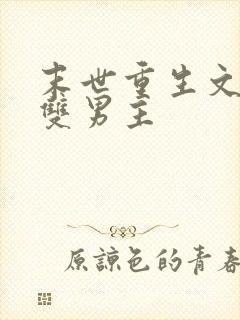 末世重生文
雙男主
原諒色的青春